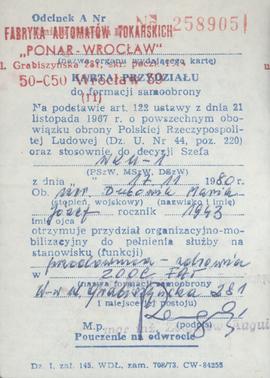 Odcinek A Nr
No 258905
FABRYKA AUTOMATÓW TOKARSKICH
"PONAR-WROCŁAW"
l. Grabiszyńska 281, skr. poczt.
50-C50 Wrocław 59
(11)
KARTA PRZYDZIAŁU
do formacji samoobrony
Na podstawie art. 122 ustawy z dnia 21
listopada 1967 r. o powszechnym obo-
wiązku obrony Polskiej Rzeczypospoli-
tej Ludowej (Dz. U. Nr 44, poz. 220)
oraz stosownie do decyzji Szefa
WKU-1
(PSzW, MSzW, DSzW)
z dnia 17 11 1980 r.
Ob. Maria
(stopień, wojskowy) (nazwisko i imię)
Józef rocznik 1943
imię ojca
otrzymuje przydział organizacyjno-mo-
bilizacyjny do pełnienia służby na
stanowisku (funkcji)
w ZOOC FAT
(nazwa formacji samoobrony
W-w ul. Grabiszyńska 281
i miejsce jej postoju)
M.p. (podpis)
Pouczenie na odwrocie
Dz. I. zał. 145. WDŁ, zam. 708/73. CW-84255